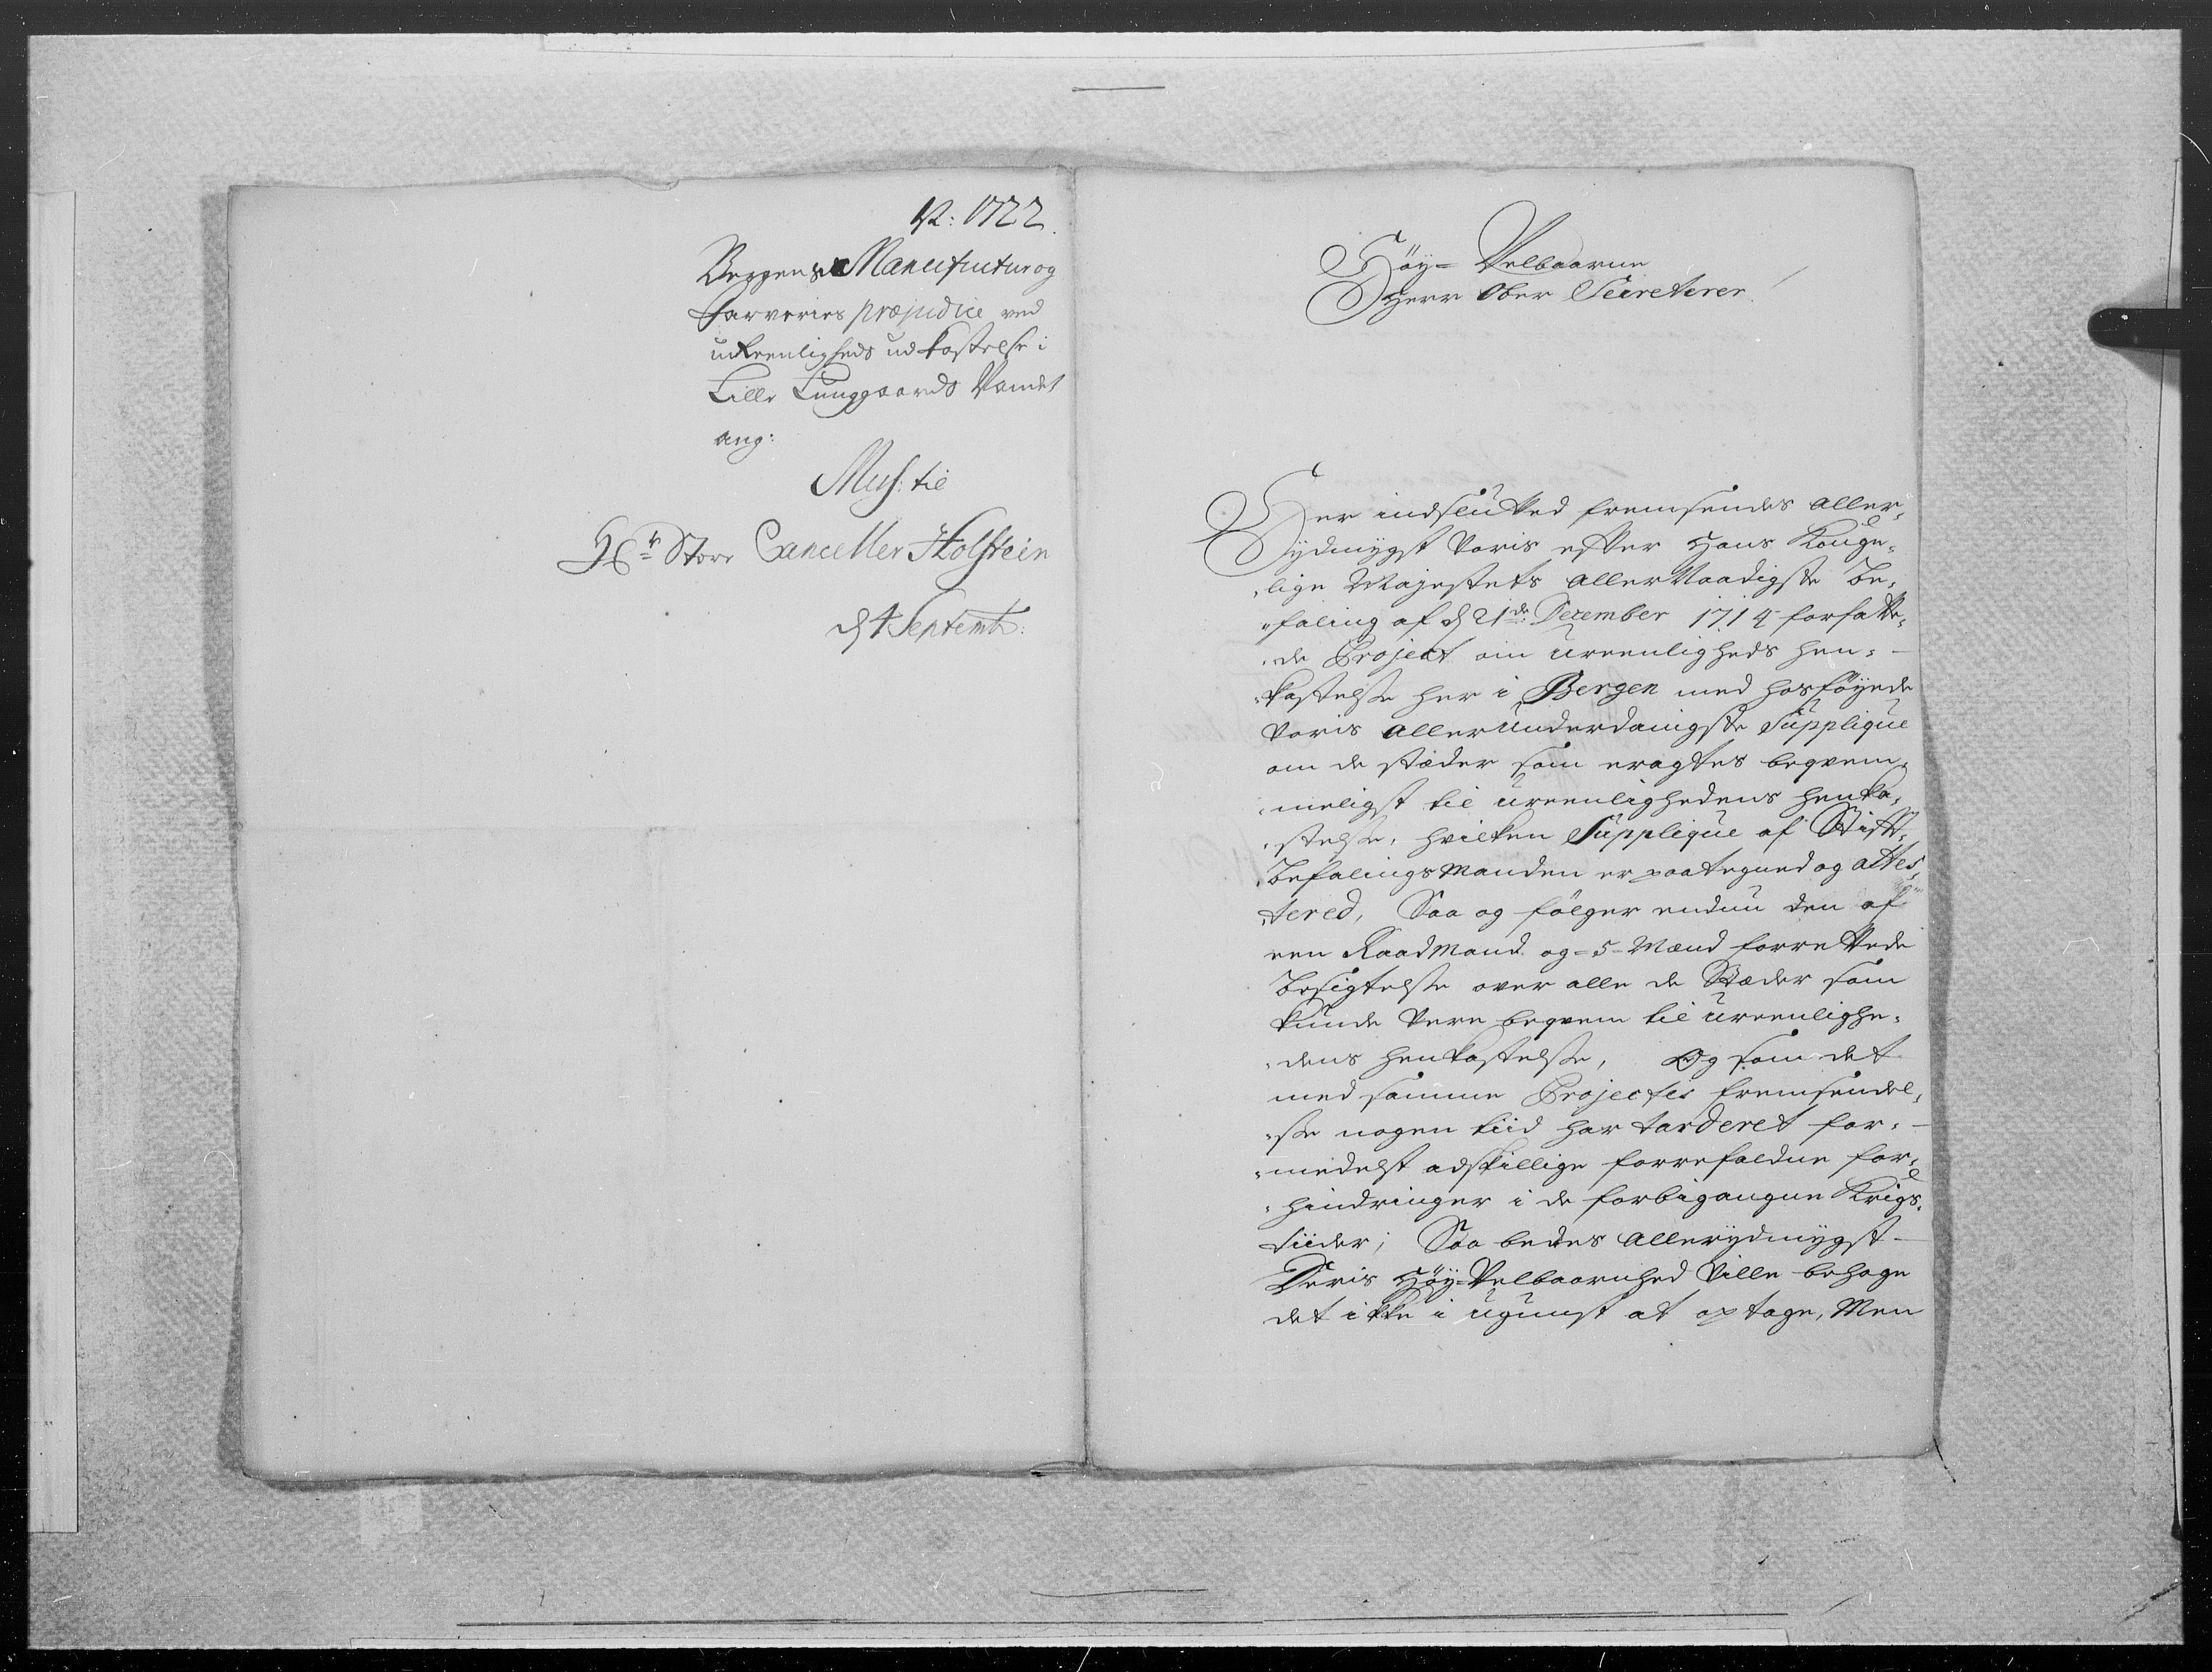 A: 1722.
Bergens Manufactur og
Farveries præjudice ved
ureenligheds udkastelse i
Lille Lunggaards Vandet
ang:
Miss: til
Hr: Stor Canceller Holstein
d 4 Septemb:
Høy-Velbaarne
Herr Ober Secreterer.
Her indslutted fremsendes aller-
ydmygst voris efter Hans Konge-
lige Majestets allerNaadigste be-
faling af d 21de December 1714 forfatte-
de Project om ureenligheds hen-
kastelse her i Bergen med hosføyede
voris allerunderdanigste Supplique
om de stæder som eragtes beqvem-
meligst til ureenlighedens henka-
stelse, hvilken Supplique af Stift-
befalingsmanden er paategned og attes-
tered, Saa og følger endnu den af
een Raadmand og-5-Mænd forrettede
besigtelse over alle de Stæder som
kunde være beqvem til ureenlighe-
dens henkastelse, Og som det
med samme Projectes fremsendel-
se nogen tiid har tarderet for-
medelst adskillige forrefaldne for-
hindringer i de forbigangne Krigs-
tiider; Saa bedes allerydmygst
Deris Høy-Velbaarnhed Ville behage
det ikke i ugunst at optage, Men